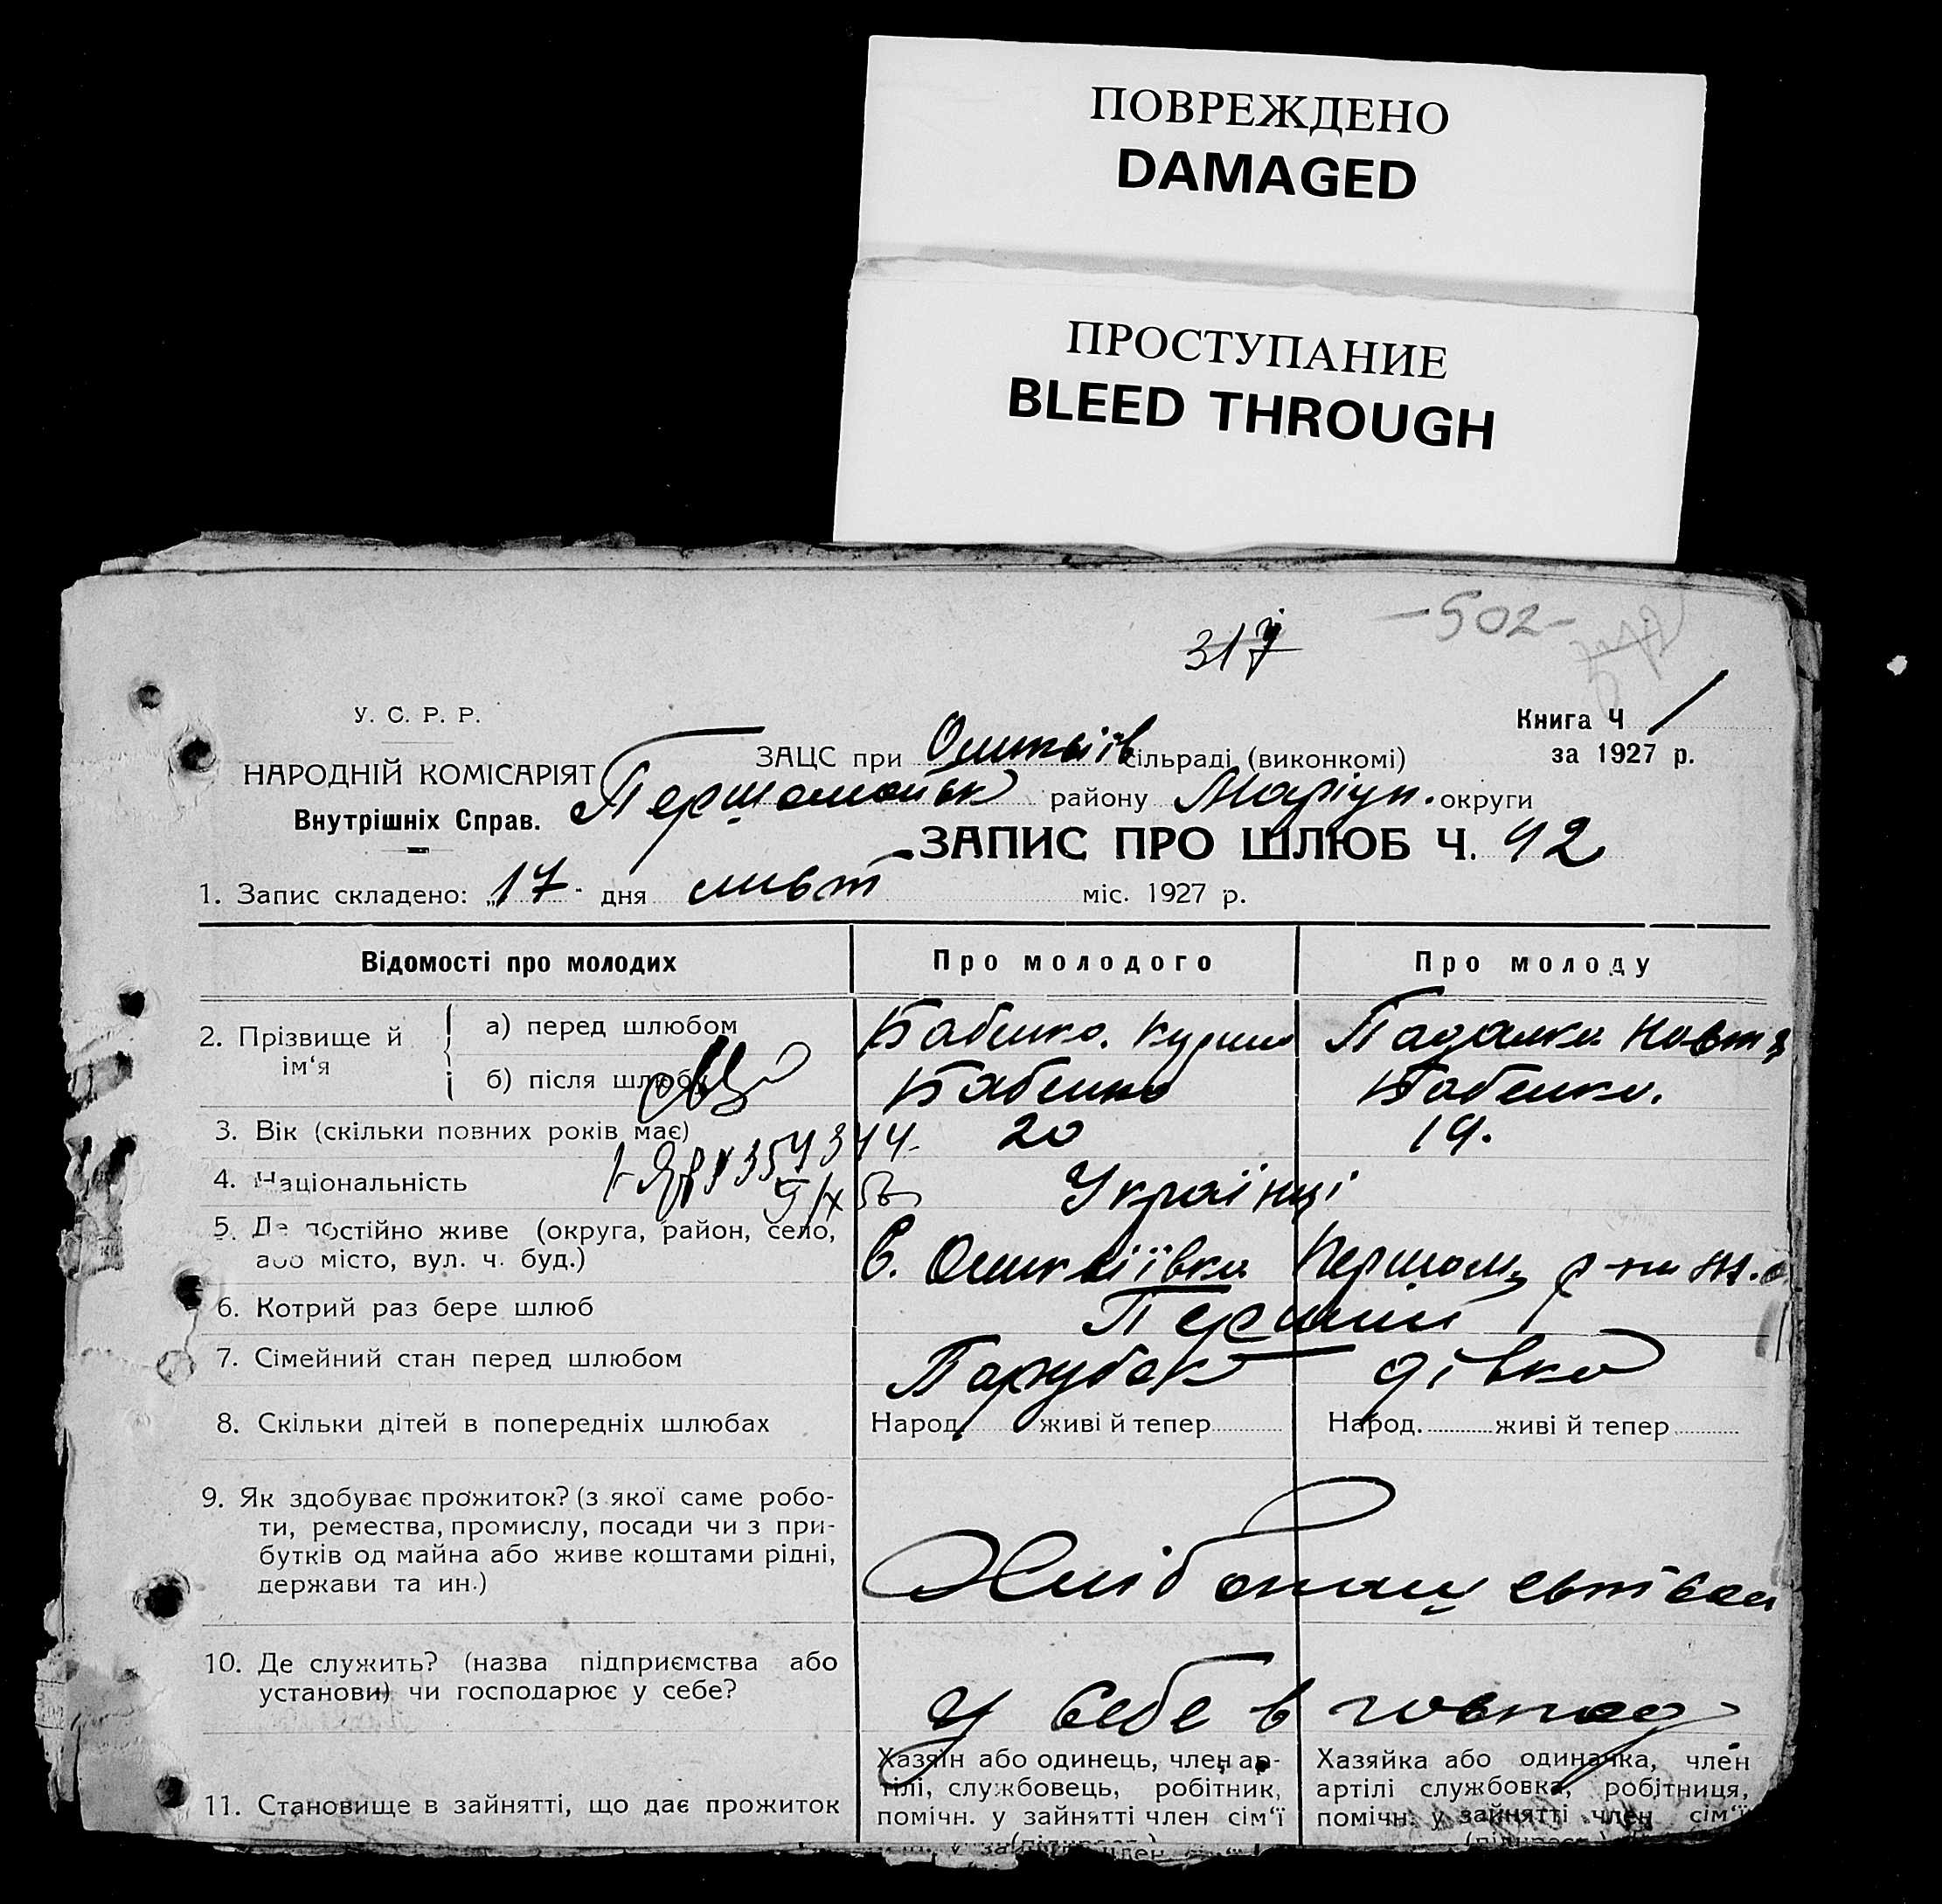 ПОВРЕЖДЕНО
DAMAGED
ПРОСТУПАНИЕ
BLEED THROUGH
-502-
317
У. С. Р. Р.
Книга Ч 1
ЗАЦС при сільраді (виконкомі)
за 1927 р.
НАРОДНІЙ КОМІСАРІЯТ
Першомайськ району Маріуп. округи
Внутрішніх Справ.
ЗАПИС ПРО ШЛЮБ Ч. 42
1. Запис складено: „17" дня лист міс. 1927 р.
Відомості про молодих Про молодого Про молоду
2. Прізвище й ім'я
а) перед шлюбом Бабенко. Падалка
б) після шлюбу Бабенко Бабенко.
3. Вік (скільки повних років має) 20 19.
4. Національність Українці
5. Де постійно живе (округа, район, село,
або місто, вул. ч. буд.) с. Першом р-на
6. Котрий раз бере шлюб Перший
7. Сімейний стан перед шлюбом Парубок дівка
8. Скільки дітей в попередніх шлюбах Народ. живі й тепер Народ. живі й тепер
9. Як здобуває прожиток? (з якої саме робо-
ти, ремества, промислу, посади чи з при-
бутків од майна або живе коштами рідні,
держави та ин.)
10. Де служить? (назва підприємства або
установи) чи господарює у себе?
у себе в господ
Хазяїн або одинець, член ар-
тілі, службовець, робітник,
помічн. у зайнятті член сім'ї
Хазяйка або одиначка, член
артілі службовка, робітниця,
помічн. у зайнятті член сім'ї
11. Становище в зайнятті, що дає прожиток